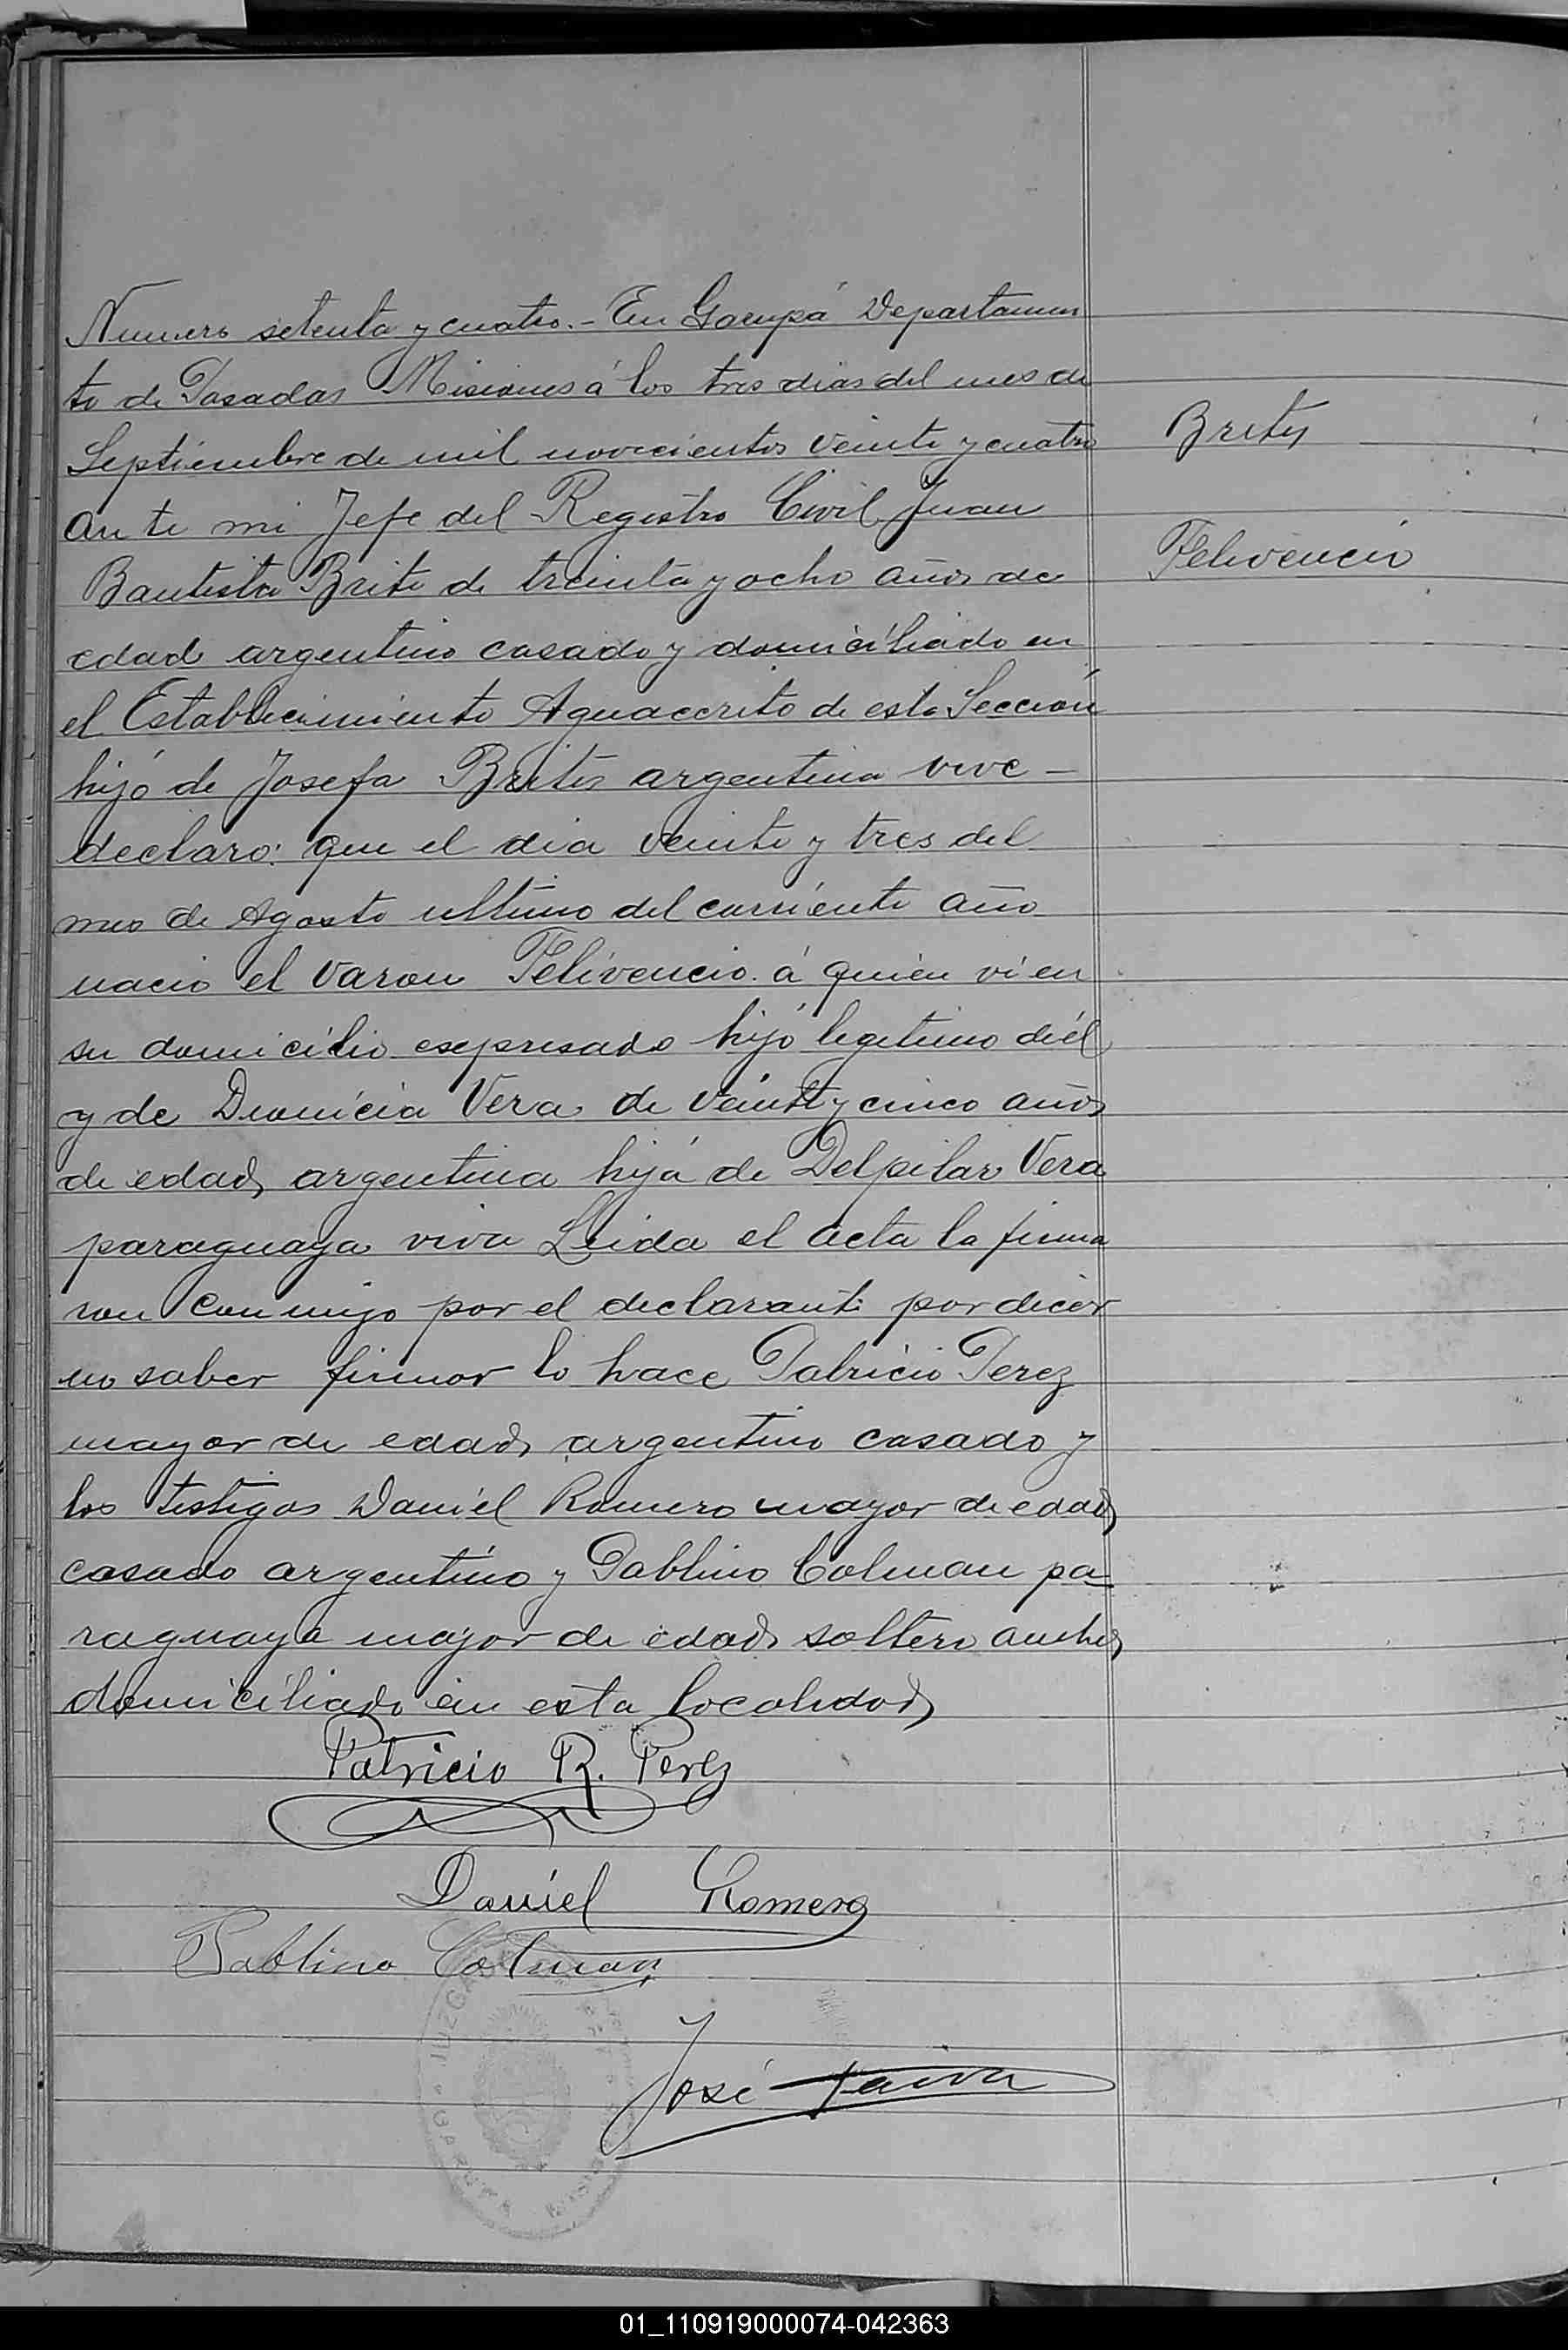 Numero setenta y cuatro.- En Garupá Departamen
to de Posadas Misiones á los tres dias del mes de
Septiembre de mil novecientos veinte y cuatro
ante mi Jefe del Registro Civil Juan
Brites
Bautista Brite de treinta y ocho años de
Felivencio
edad argentino casado y domiciliado en
el Establecimiento Aguacerito de esta Sección
hijo de Josefa Brites argentina vive -
declaro: que el dia veinte y tres del
mes de Agosto ultimo del corriente año
nacio el varon Felivencio á quien vi en
su domicilio esepresado hijo legitimo diél
y de Dionicia Vera de veinte y cinco años
de edad argentina hija de Delpilar Vera
paraguaya viva Leida el acta la firma
ron conmigo por el declarante por decir
no saber firmar lo hace Patricio Perez
mayor de edad argentino casado y
los testigos Daniel Romero mayor de edad
casado argentino y Pablino Colman pa
raguayo mayor de edad soltero ambos
domiciliado en esta localidad
Patricio R. Perez
Daniel Romero
Pablino Colman
JUZGADO
GARUPA
José Paiva
01_110919000074-042363